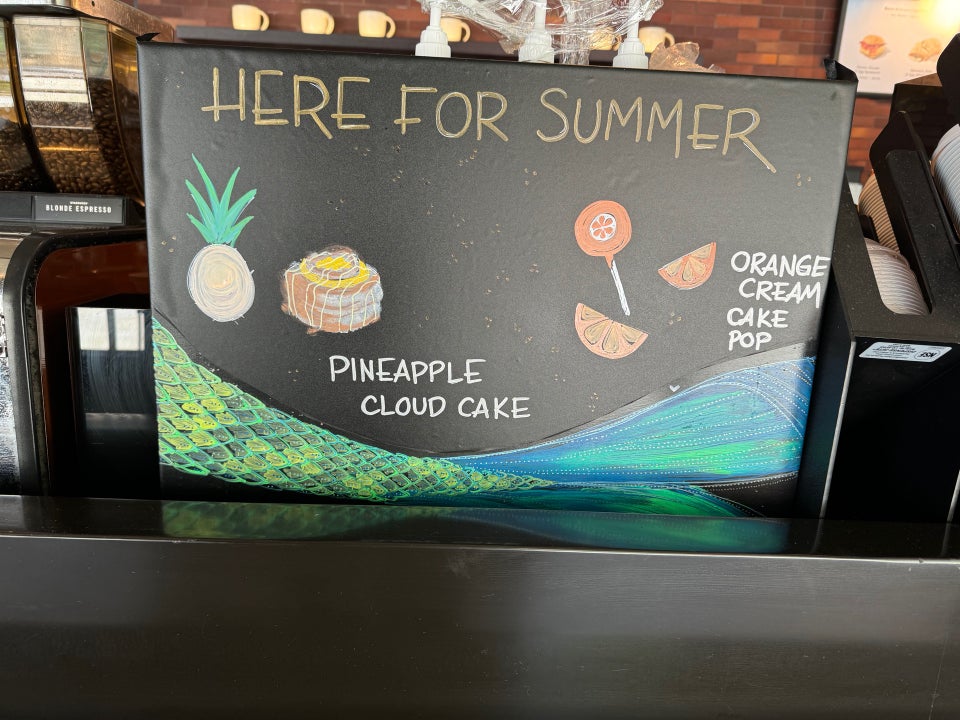 HERE FOR SUMMER
BLONDE ESPRESSO
ORANGE
CREAM
CAKE
POP
PINEAPPLE
CLOUD CAKE